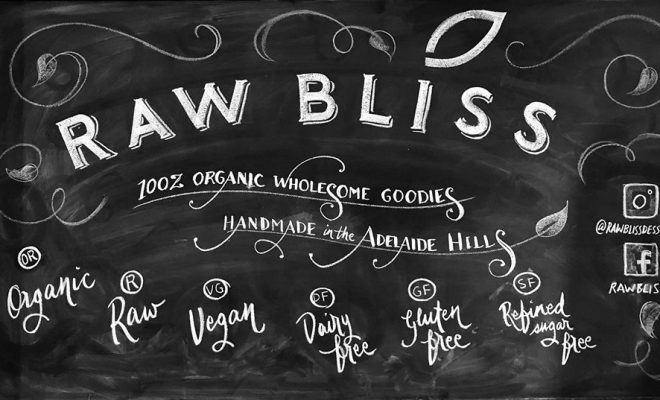 RAW BLISS
100% ORGANIC WHOLESOME GOODIES
HANDMADE in the ADELAIDE HILLS
@RAWBLISSDESS
RAWBLIS
OR
Organic
R
Raw
VG
Vegan
DF
Dairy
free
GF
Gluten
free
SF
Refined
sugar
free